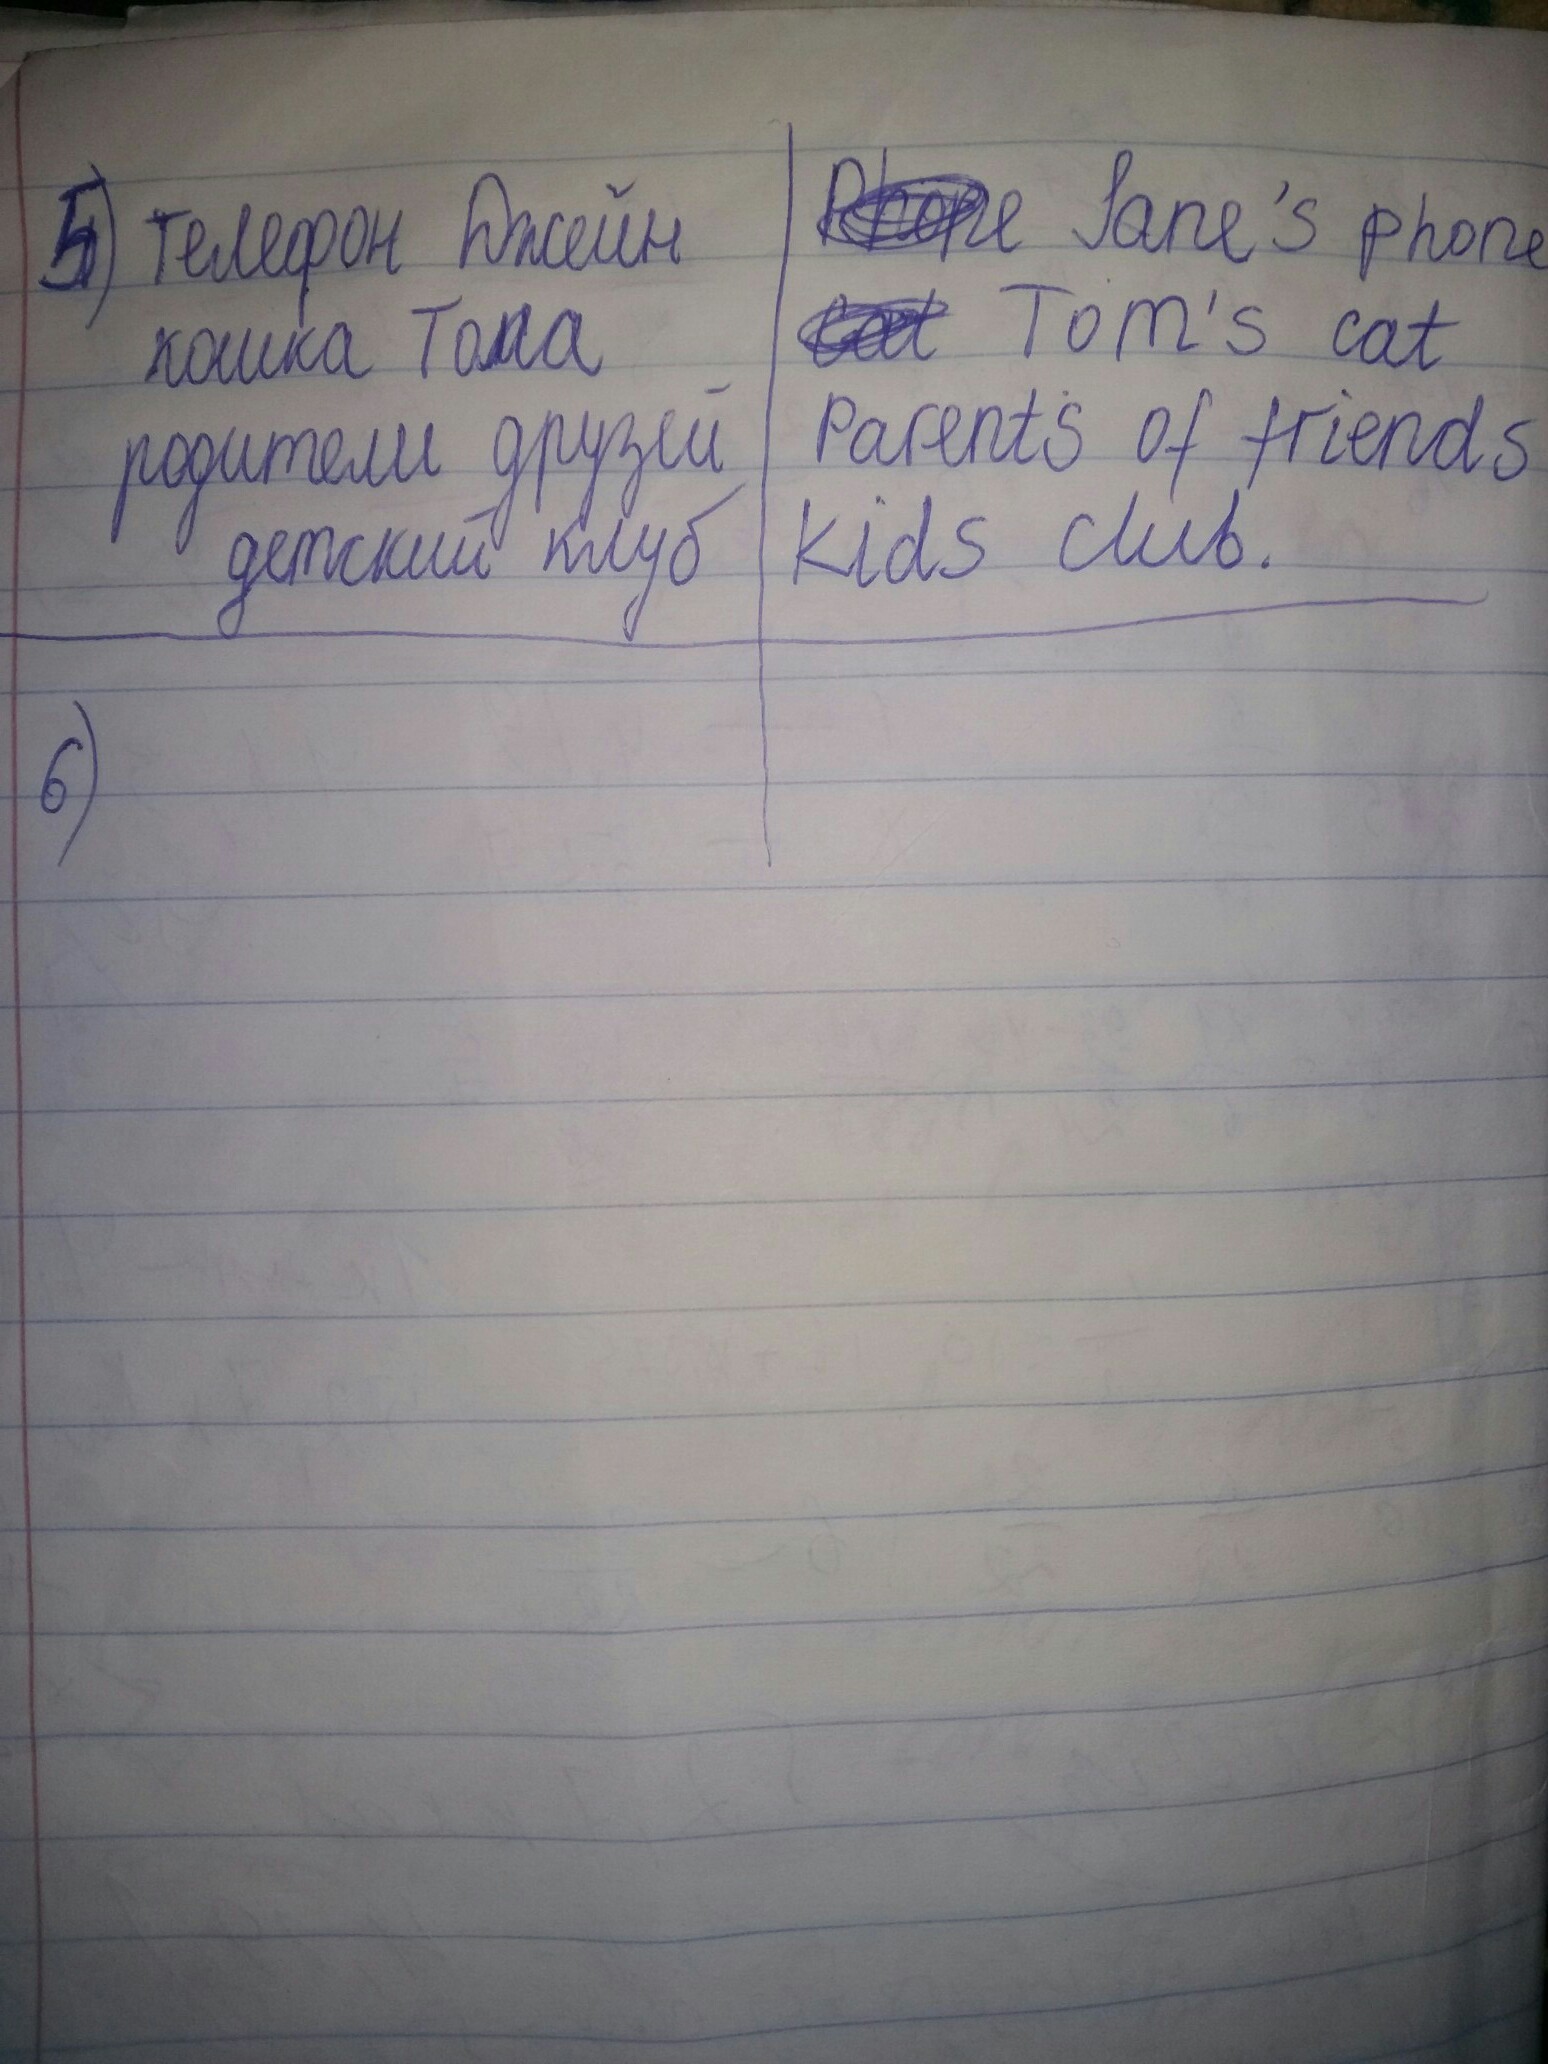 5) Телефон Джейн Phone Jane's phone
кошка Тома cat Tom's cat
родители друзей Parent's of friends
детский клуб Kids club.
6)